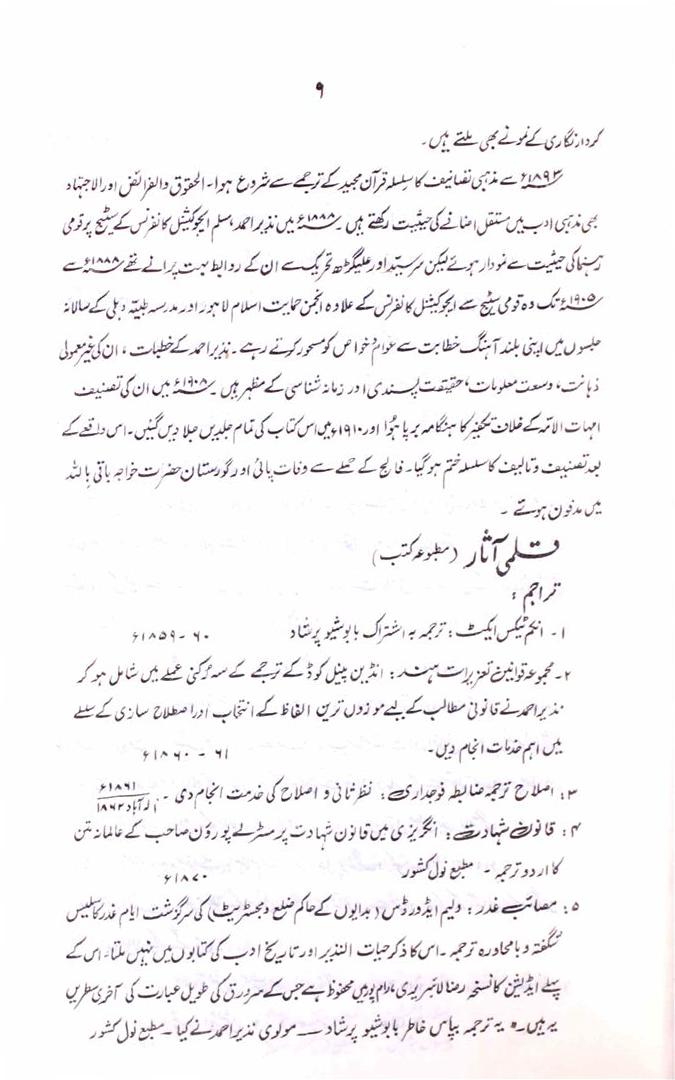 ۹
کردار نگاری کے نمونے بھی ملتے ہیں۔
۱۸۹۳ء سے مذہبی تصانیف کا سلسلہ قرآن مجید کے ترجمے سے شروع ہوا۔ الحقوق والفرائض اور الاجتہاد
بھی مذہبی ادب میں مستقل اضافے کی حیثیت رکھتے ہیں۔ ۱۸۸۸ء میں نذیر احمد، مسلم ایجوکیشنل کانفرنس کے سٹیج پر قومی
رہنما کی حیثیت سے نمودار ہوئے لیکن سرسید اور علیگڑھ تحریک سے ان کے روابط بہت پرانے تھے ۱۸۸۸ء سے
۱۹۰۵ء تک وہ قومی سٹیج سے ایجوکیشنل کانفرنس کے علاوہ انجمن حمایت اسلام لاہور اور مدرسہ طبیہ دہلی کے سالانہ
جلسوں میں اپنی بلند آہنگ خطابت سے عوام و خواص کو مسحور کرتے رہے۔ نذیر احمد کے خطبات، ان کی غیر معمولی
ذہانت، وسعت معلومات، حقیقت پسندی اور زمانہ شناسی کے مظہر ہیں۔ ۱۹۰۸ء میں ان کی تصنیف
امہات الامہ کے خلاف تکفیر کا ہنگامہ برپا ہوا اور ۱۹۱۰ء میں اس کتاب کی تمام جلدیں جلا دیں گئیں۔ اس واقعے کے
بعد تصنیف و تالیف کا سلسلہ ختم ہو گیا۔ فالج کے حملے سے وفات پائی اور گورستان حضرت خواجہ باقی باللہ
میں مدفون ہوئے۔
قلمی آثار (مطبوعہ کتب)
تراجم:
۱۔ انکم ٹیکس ایکٹ: ترجمہ بہ اشتراک بابو شیو پرشاد ۶۰-۱۸۵۹ء
۲۔ مجموعہ قوانین تعزیرات ہند: انڈین پینل کوڈ کے ترجمے کے سہ رکنی عملے میں شامل ہو کر
نذیر احمد نے قانونی مطالب کے لیے موزوں ترین الفاظ کے انتخاب اور اصطلاح سازی کے سلسلے
میں اہم خدمات انجام دیں۔ ۶۱-۱۸۶۰ء
۳: اصلاح ترجمہ ضابطہ فوجداری: نظر ثانی و اصلاح کی خدمت انجام دی۔ ۱۸۶۱ء الہ آباد ۱۸۶۲
۴: قانون شہادت: انگریزی میں قانون شہادت پر مسٹر لے پوروُن صاحب کے عالمانہ متن
کا اردو ترجمہ۔ مطبع نول کشور ۱۸۷۰ء
۵: مصائب غدر: ولیم ایڈورڈس (بدایوں کے حاکم ضلع و مجسٹریٹ) کی سرگزشت ایام غدر کا سلیس
شگفتہ و بامحاورہ ترجمہ۔ اس کا ذکر حیات النذیر اور تاریخ ادب کی کتابوں میں نہیں ملتا۔ اس کے
پہلے ایڈیشن کا نسخہ رضا لائبریری، رام پور میں محفوظ ہے جس کے سرورق کی طویل عبارت کی آخری سطریں
یہ ہیں۔ "یہ ترجمہ بپاس خاطر بابو شیو پرشاد —— مولوی نذیر احمد نے کیا۔ مطبع نول کشور